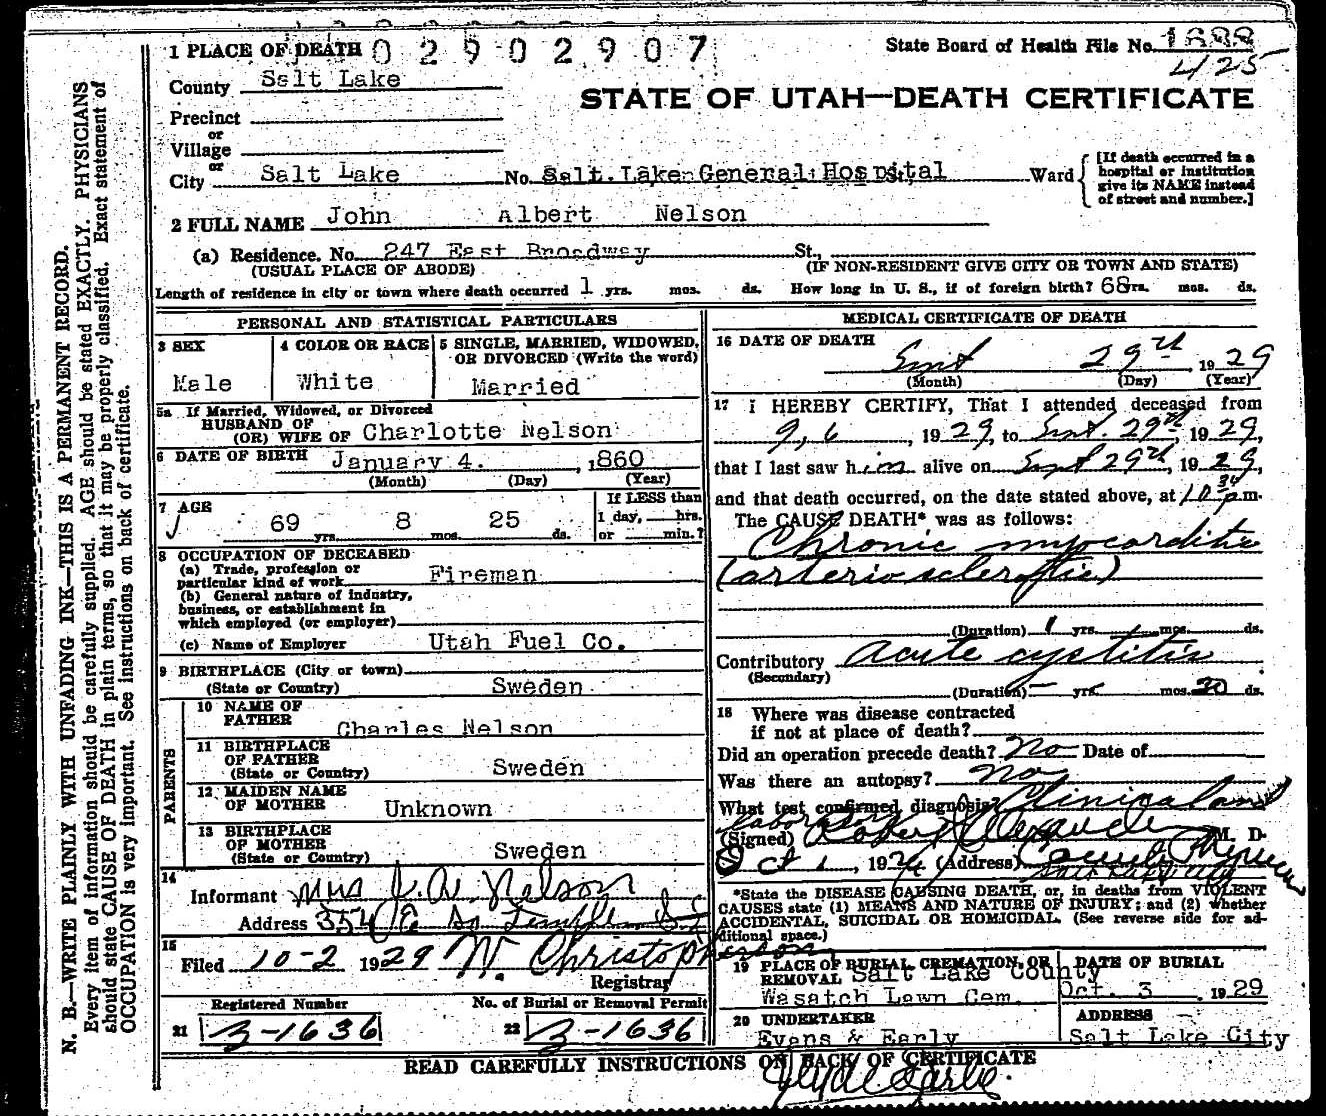 1 PLACE OF DEATH 02902907
State Board of Health File No. 1888
425
County Salt Lake
STATE OF UTAH—DEATH CERTIFICATE
Precinct
or
Village
or
City Salt Lake No. Salt Lake General Hospital St., Ward
[If death occurred in a
hospital or institution
give its NAME instead
of street and number.]
2 FULL NAME John Albert Nelson
(a) Residence. No. 247 East Broadway St.,
(USUAL PLACE OF ABODE) (IF NON-RESIDENT GIVE CITY OR TOWN AND STATE)
Length of residence in city or town where death occurred 1 yrs. mos. ds. How long in U. S., if of foreign birth? 68 yrs. mos. ds.
PERSONAL AND STATISTICAL PARTICULARS
3 SEX
Male
4 COLOR OR RACE
White
5 SINGLE, MARRIED, WIDOWED,
OR DIVORCED (Write the word)
Married
5a If Married, Widowed, or Divorced
HUSBAND OF
(OR) WIFE OF Charlotte Nelson
6 DATE OF BIRTH January 4. , 1860
(Month) (Day) (Year)
7 AGE
69 yrs. 8 mos. 25 ds.
If LESS than
1 day, hrs.
or min.?
8 OCCUPATION OF DECEASED
(a) Trade, profession or
particular kind of work Fireman
(b) General nature of industry,
business, or establishment in
which employed (or employer)
(c) Name of Employer Utah Fuel Co.
9 BIRTHPLACE (City or town)
(State or Country) Sweden
PARENTS
10 NAME OF
FATHER Charles Nelson
11 BIRTHPLACE
OF FATHER
(State or Country) Sweden
12 MAIDEN NAME
OF MOTHER Unknown
13 BIRTHPLACE
OF MOTHER
(State or Country) Sweden
14
Informant Mrs J. A. Nelson
Address 354 E. So. Temple St
15
Filed 10-2 1929 W. Christopherson
Registrar
Registered Number
21 3-1636
No. of Burial or Removal Permit
22 3-1636
MEDICAL CERTIFICATE OF DEATH
16 DATE OF DEATH
Sept 29th, 1929
(Month) (Day) (Year)
17 I HEREBY CERTIFY, That I attended deceased from
9, 6, 1929, to Sept. 29th, 1929,
that I last saw him alive on Sept 29th, 1929,
and that death occurred, on the date stated above, at 10 34 p.m.
The CAUSE DEATH* was as follows:
Chronic myocarditis
(arteriosclerotic)
(Duration) 1 yrs. mos. ds.
Contributory Acute cystitis
(Secondary)
(Duration) — yrs. mos. 20 ds.
18 Where was disease contracted
if not at place of death?
Did an operation precede death? No Date of
Was there an autopsy? No
What test confirmed diagnosis? Clinical and
laboratory
(Signed) Robert M. D.
Oct 1, 1929 (Address)
Salt Lake City
*State the DISEASE CAUSING DEATH, or, in deaths from VIOLENT
CAUSES state (1) MEANS AND NATURE OF INJURY; and (2) whether
ACCIDENTAL, SUICIDAL OR HOMICIDAL. (See reverse side for ad-
ditional space.)
19 PLACE OF BURIAL CREMATION, OR
REMOVAL Salt Lake County
Wasatch Lawn Cem.
DATE OF BURIAL
Oct. 3, 1929
20 UNDERTAKER
Evans & Early
ADDRESS
Salt Lake City
READ CAREFULLY INSTRUCTIONS ON BACK OF CERTIFICATE
N. B.—WRITE PLAINLY WITH UNFADING INK—THIS IS A PERMANENT RECORD.
Every item of information should be carefully supplied. AGE should be stated EXACTLY. PHYSICIANS
should state CAUSE OF DEATH in plain terms, so that it may be properly classified. Exact statement of
OCCUPATION is very important. See instructions on back of certificate.